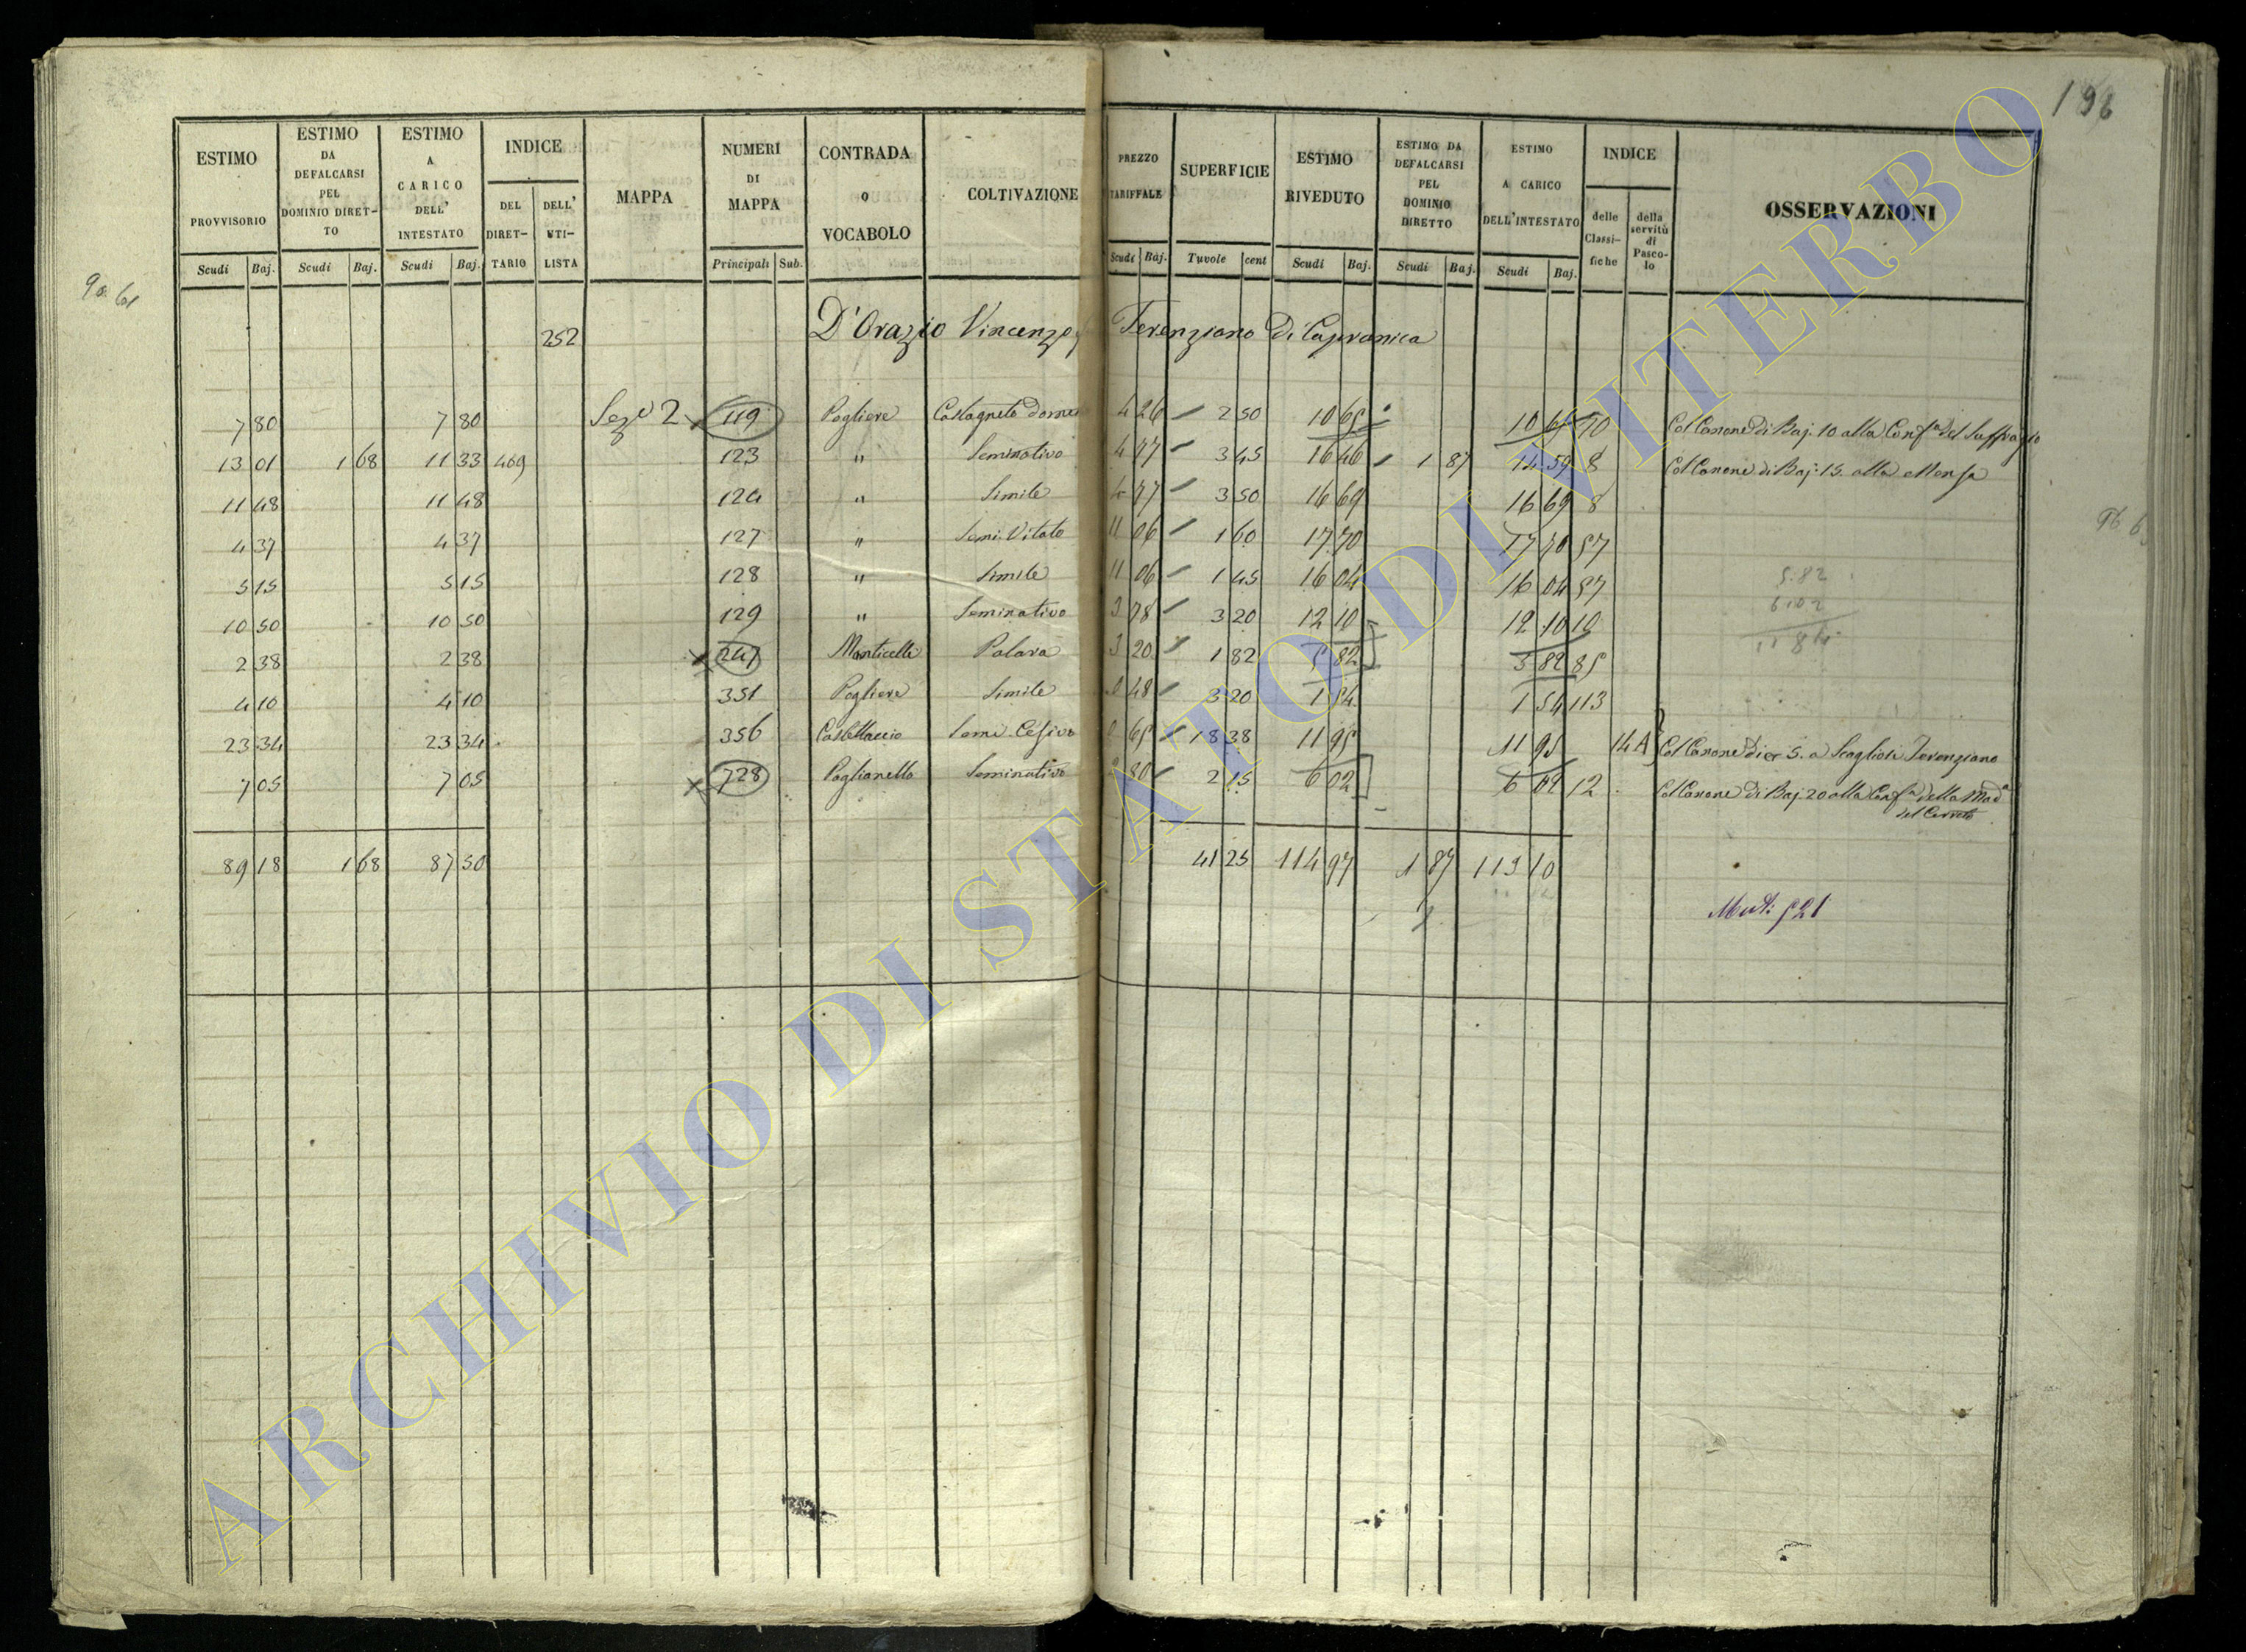 198
ESTIMO PROVVISORIO | ESTIMO DA DEFALCARSI PEL DOMINIO DIRETTO | ESTIMO A CARICO DELL' INTESTATO | INDICE | MAPPA | NUMERI DI MAPPA | CONTRADA O VOCABOLO | COLTIVAZIONE | PREZZO TARIFFALE | SUPERFICIE | ESTIMO RIVEDUTO | ESTIMO DA DEFALCARSI PEL DOMINIO DIRETTO | ESTIMO A CARICO DELL'INTESTATO | INDICE | OSSERVAZIONI
DEL DIRETTARIO | DELL' UTILISTA | delle Classifiche | della servitù di Pascolo
Scudi | Baj. | Scudi | Baj. | Scudi | Baj. | Principali | Sub. | Scudi | Baj. | Tavole | cent | Scudi | Baj. | Scudi | Baj. | Scudi | Baj.
252 D'Orazio Vincenzo Terenziano di Capranica
7 80 | 7 80 | Sez. 2 | 119 | Pogliere | Castagneto Domes | 4 26 | 2 50 | 10 65 | 10 65 | 70 | Col Canone di Baj. 10 alla Conf.a del Suffragio
13 01 | 1 68 | 11 33 | 469 | 123 | " | Seminativo | 4 77 | 3 45 | 16 46 | 1 87 | 14 59 | 8 | Col Canone di Baj. 15. alla Mensa
11 48 | 11 48 | 124 | " | Simile | 4 77 | 3 50 | 16 69 | 16 69 | 8
4 37 | 4 37 | 127 | " | Semi. Vitato | 11 06 | 1 60 | 17 70 | 17 70 | 57
5 15 | 5 15 | 128 | " | Simile | 11 06 | 1 45 | 16 04 | 16 04 | 57
10 50 | 10 50 | 129 | " | Seminativo | 3 78 | 3 20 | 12 10 | 12 10 | 10
2 38 | 2 38 | 247 | Monticelli | Palara | 3 20 | 1 82 | 5 82 | 5 82 | 85
4 10 | 4 10 | 351 | Pogliere | Simile | 48 | 3 20 | 1 54 | 1 54 | 113
23 34 | 23 34 | 356 | Castellaccio | Semi. Cesivo | 65 | 18 38 | 11 95 | 11 95 | 14 A | Col Canone di 5. a Scaglioli Terenziano
7 05 | 7 05 | 728 | Poglianello | Seminativo | 2 80 | 2 15 | 6 02 | 6 02 | 12 | Col Canone di Baj. 20 alla Conf.a della Mad.a
del Cerreto
89 18 | 1 68 | 87 50 | 41 25 | 114 97 | 1 87 | 113 10
5.82
6.02
11 84
Mut: 521
ARCHIVIO DI STATO DI VITERBO